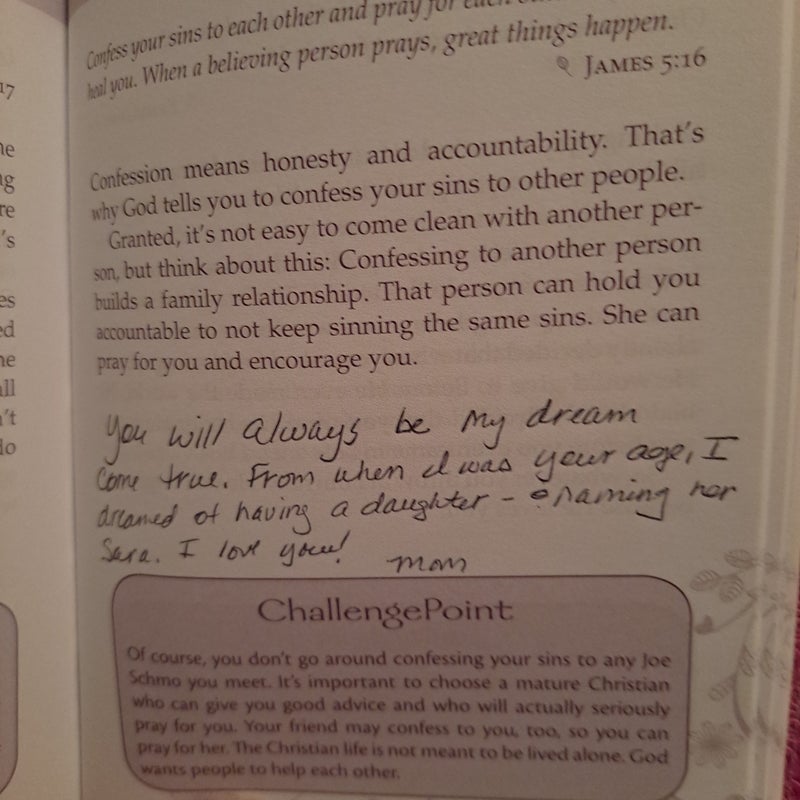 Confess your sins to each other and pray for each
heal you. When a believing person prays, great things happen.
JAMES 5:16
17
Confession means honesty and accountability. That's
why God tells you to confess your sins to other people.
Granted, it's not easy to come clean with another per-
son, but think about this: Confessing to another person
builds a family relationship. That person can hold you
accountable to not keep sinning the same sins. She can
pray for you and encourage you.
You will always be my dream
come true. From when I was your age, I
dreamed of having a daughter - naming her
Sara. I love you!
Mom
ChallengePoint
Of course, you don't go around confessing your sins to any Joe
Schmo you meet. It's important to choose a mature Christian
who can give you good advice and who will actually seriously
pray for you. Your friend may confess to you, too, so you can
pray for her. The Christian life is not meant to be lived alone. God
wants people to help each other.